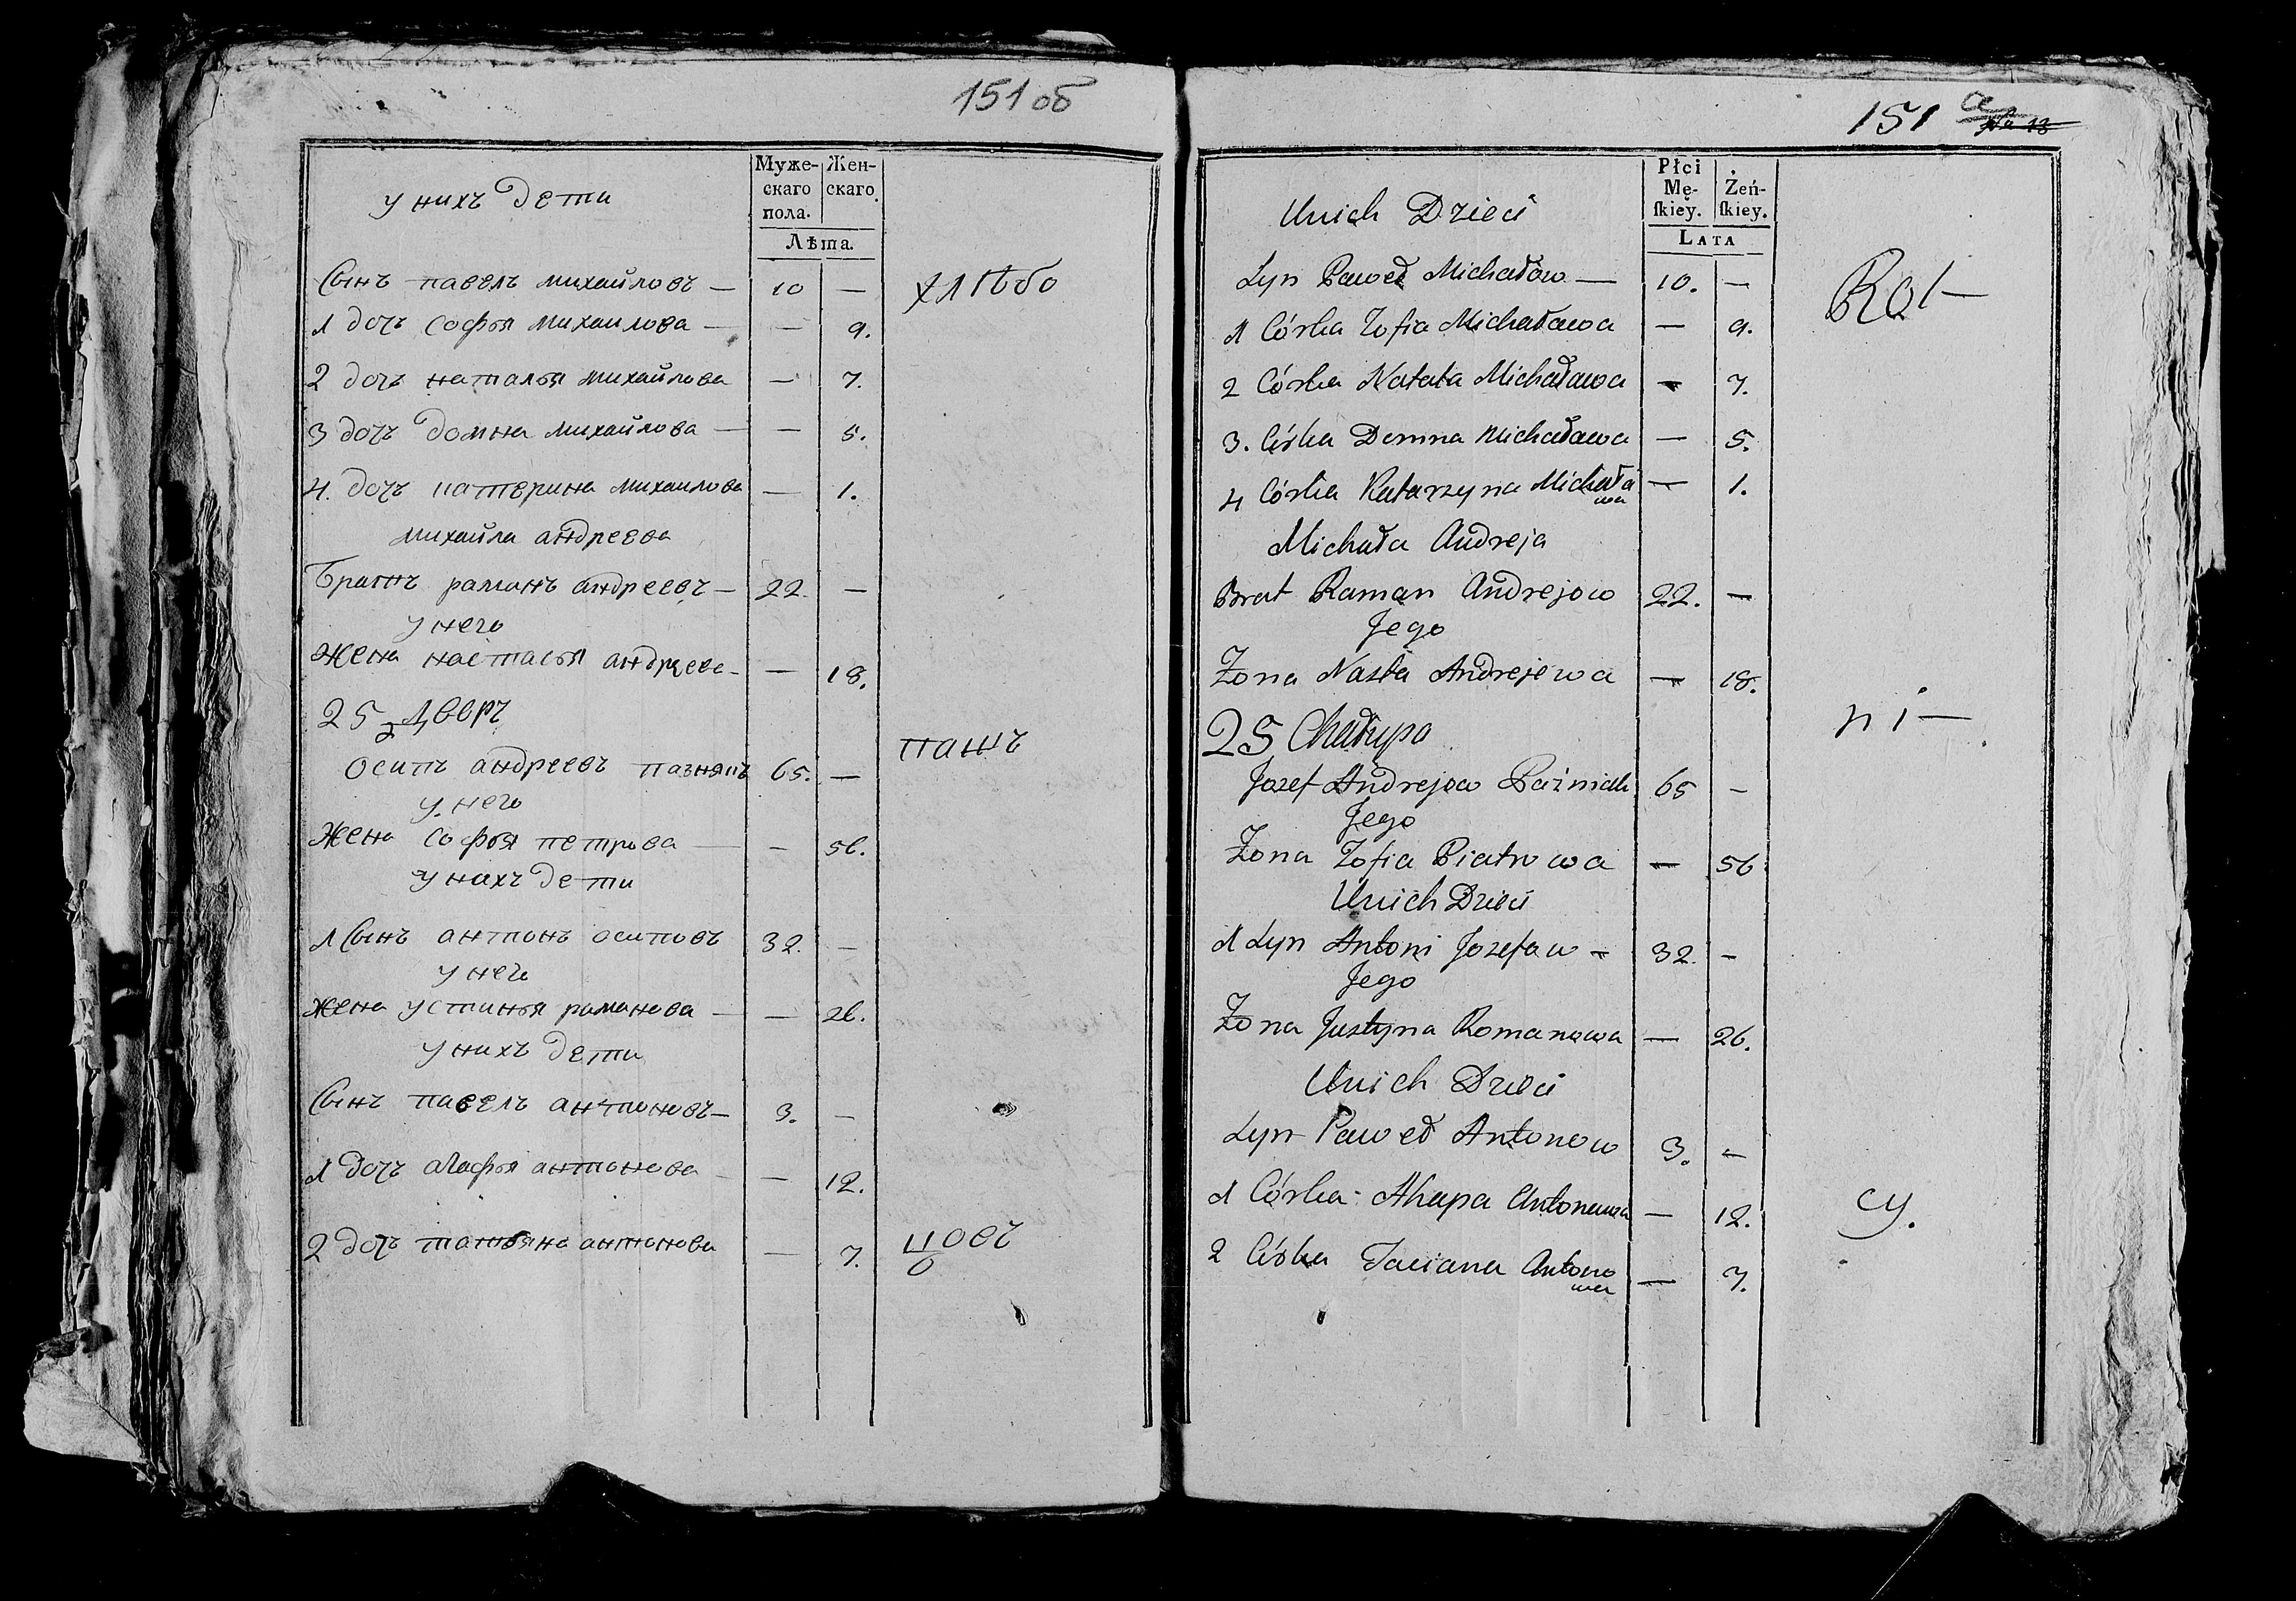 151 об
у нихъ дети
Муже-
скаго
пола.
Жен-
скаго.
Лѣта.
Сынъ павелъ михайловъ — 10 —
хлѣбо
1 доч софья михаилова — — 9.
2 доч наталья михайлова — 7.
3 доч домна михайлова — — 5.
4. доч катерина михаилова — 1.
михайла андреева
Братъ раманъ андреевъ — 22. —
у него
жена настасья андреева — — 18.
25 дворъ
пашъ
осипъ андреевъ пазнякъ 65. —
у него
жена софья петрова — — 56.
у нихъ дети
1 Сынъ антонъ осиповъ 32. —
у него
жена устинья раманова — — 26.
у нихъ дети
Сынъ павелъ антоновъ — 3. —
1 доч агафья антонова — — 12.
2 доч татьяна антонова — 7.
151 a
Unich Dzieci
Płci
Mę-
ſkiey.
Żeń-
ſkiey.
LATA
Syn Paweł Michałow — 10. —
Rol —
1 Córka Zofia Michałowa — 9.
2 Córka Natala Michałowa — 7.
3. Córka Domna Michałowa — 5.
4 Córka Katarzyna Michała
wa — 1.
Michała Andreja
Brat Raman Andrejow 22. —
Jego
Żona Nasta Andrejewa — 18.
ni —
25 Chałupa
Jozef Andrejow Paźniak 65 —
Jego
Żona Zofia Piatrowa — 56
Unich Dzieci
1 Syn Antoni Jozefow — 32. —
Jego
Żona Justyna Romanowa — 26.
Unich Dzieci
Syn Paweł Antonow 3. —
1 Córka Ahapa Antonowa — 12.
cy.
2 Córka Taciana Antono
wa — 7.